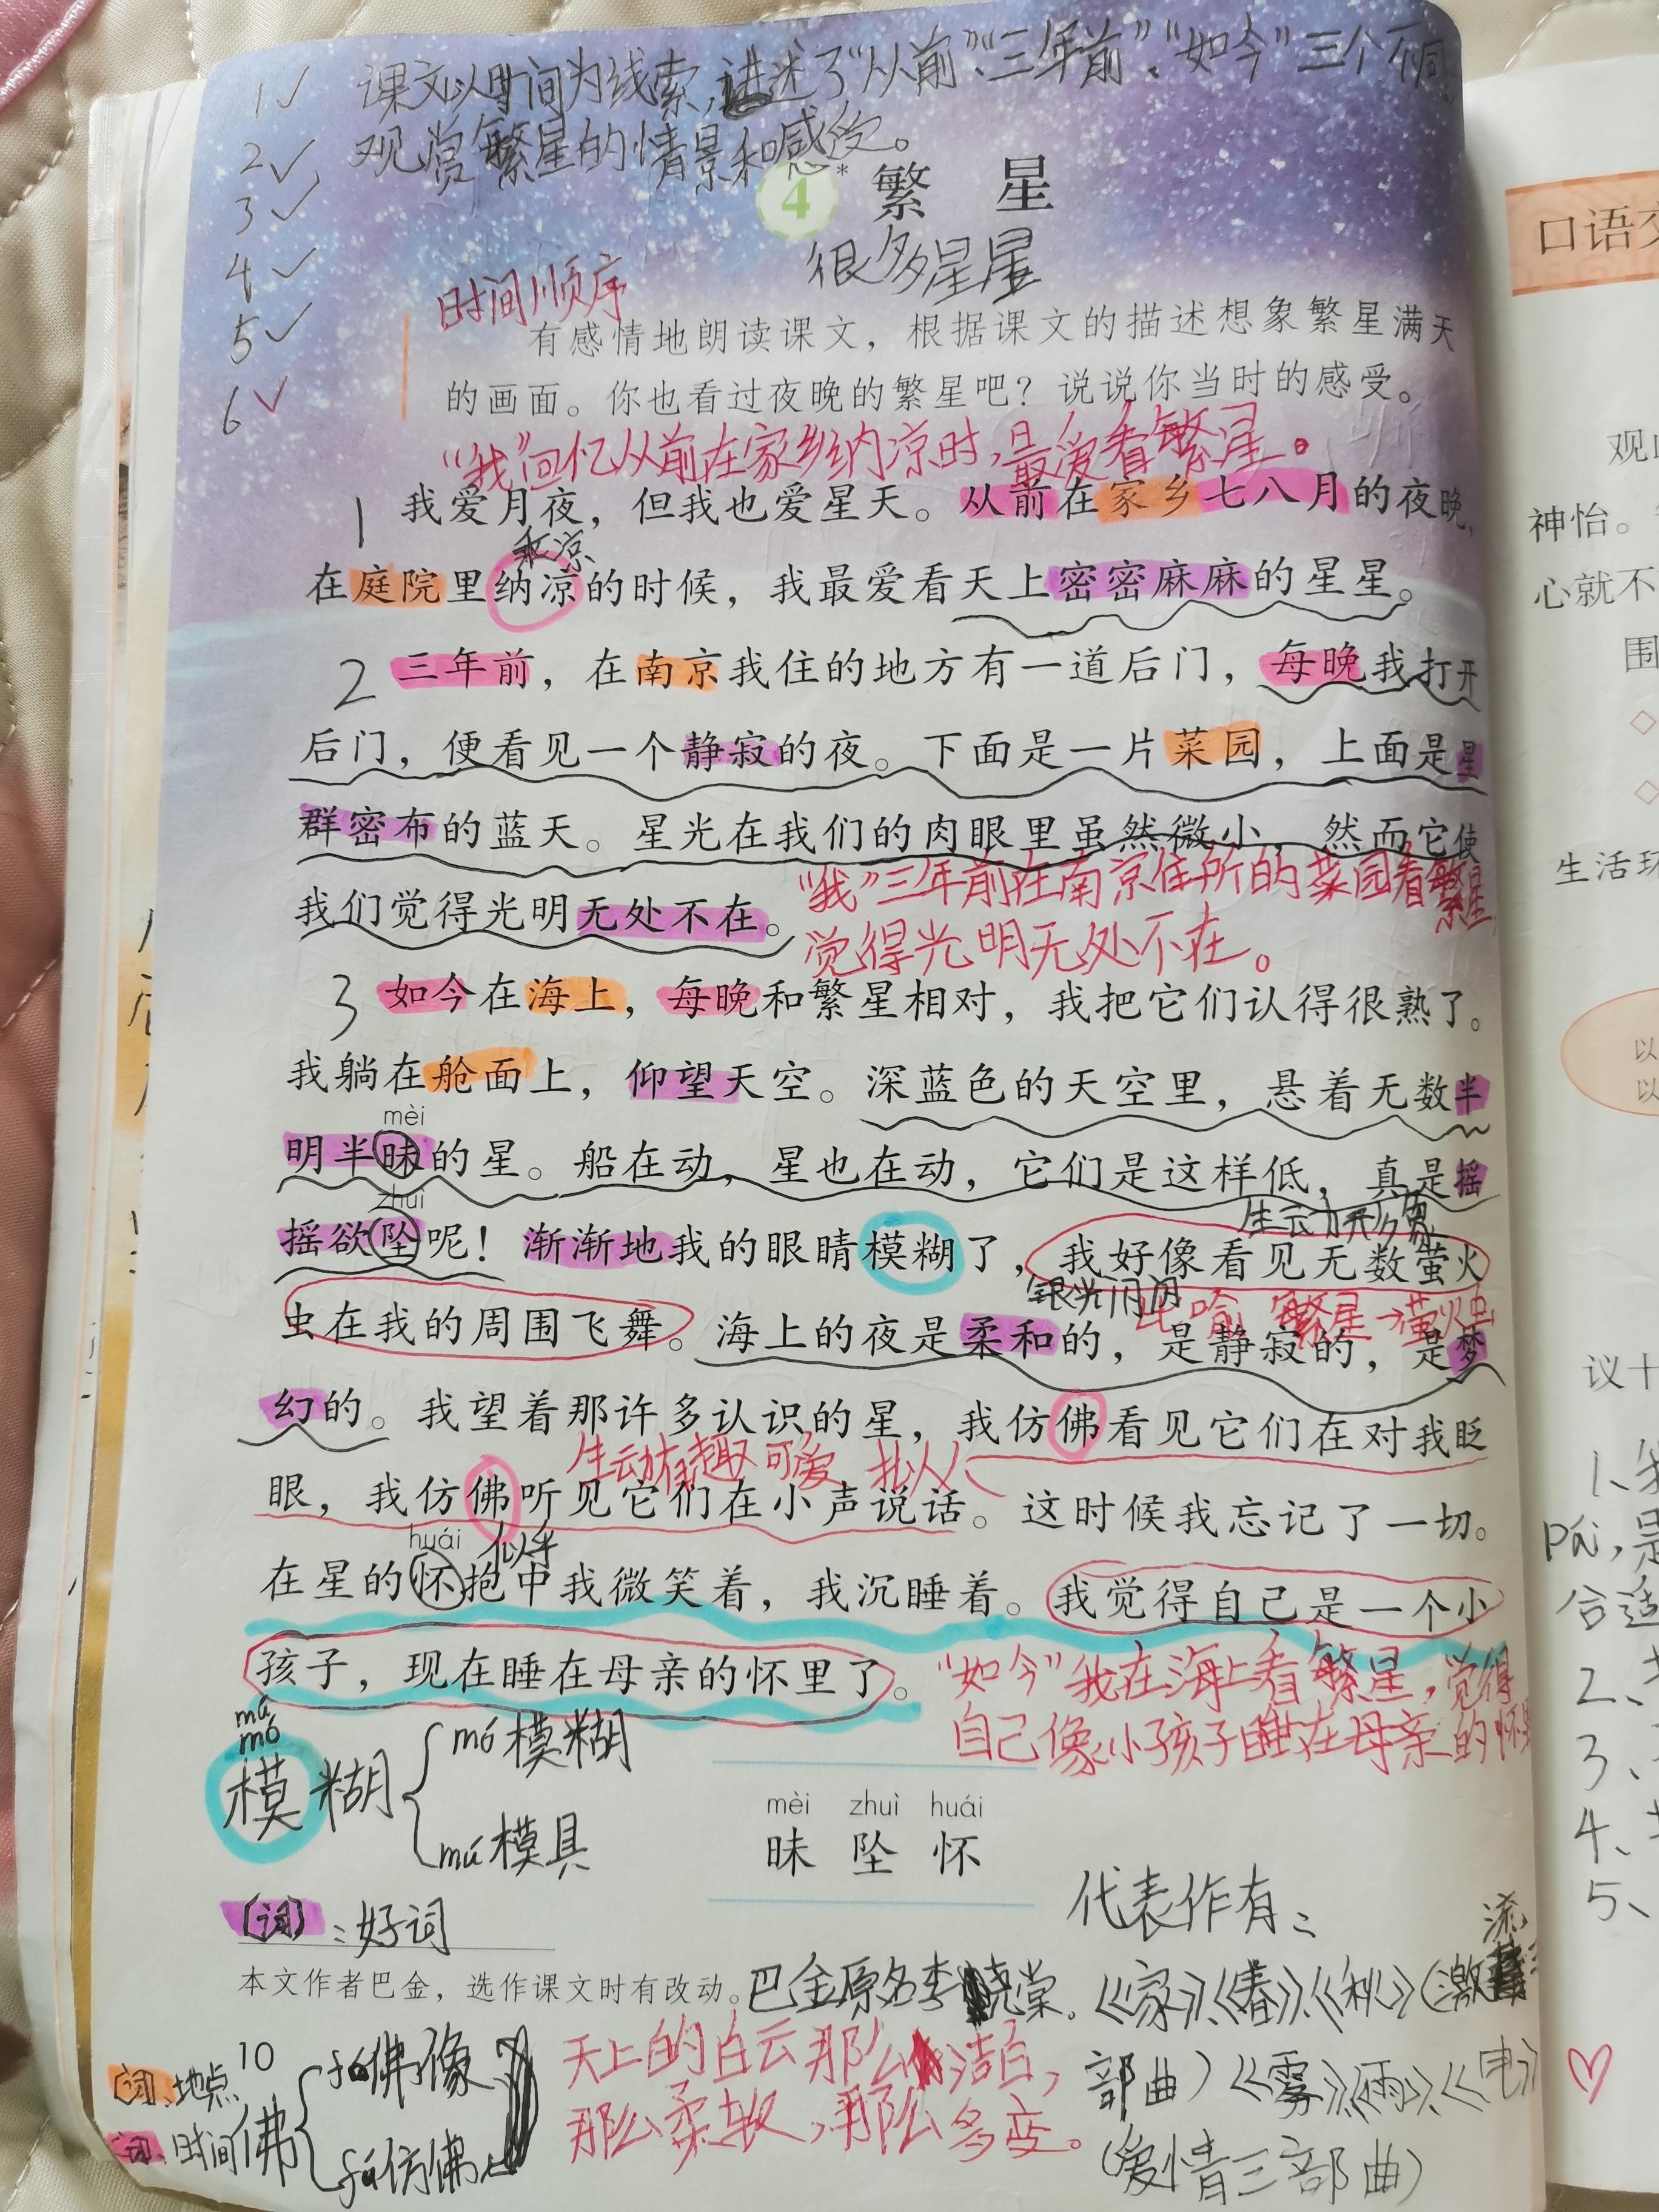 1✓ 课文以时间为线索,讲述了"从前"、"三年前"、"如今"三个不同
2✓ 观赏繁星的情景和感受。
3✓
4✓
5✓
6✓
4 * 繁 星
很多星星
时间顺序
有感情地朗读课文，根据课文的描述想象繁星满天
的画面。你也看过夜晚的繁星吧？说说你当时的感受。
"我"回忆从前在家乡纳凉时,最爱看繁星。
1 我爱月夜，但我也爱星天。从前在家乡七八月的夜晚，
乘凉
在庭院里纳凉的时候，我最爱看天上密密麻麻的星星。
2 三年前，在南京我住的地方有一道后门，每晚我打开
后门，便看见一个静寂的夜。下面是一片菜园，上面是星
群密布的蓝天。星光在我们的肉眼里虽然微小，然而它使
我们觉得光明无处不在。
"我"三年前在南京住所的菜园看繁星,
觉得光明无处不在。
3 如今在海上，每晚和繁星相对，我把它们认得很熟了。
我躺在舱面上，仰望天空。深蓝色的天空里，悬着无数半
mèi
明半昧的星。船在动，星也在动，它们是这样低，真是摇
zhuì
摇欲坠呢！渐渐地我的眼睛模糊了，我好像看见无数萤火
生动形象
虫在我的周围飞舞。海上的夜是柔和的，是静寂的，是梦
银光闪闪
比喻 繁星→萤火虫
幻的。我望着那许多认识的星，我仿佛看见它们在对我眨
生动有趣可爱 拟人
眼，我仿佛听见它们在小声说话。这时候我忘记了一切。
huái 似乎
在星的怀抱中我微笑着，我沉睡着。我觉得自己是一个小
孩子，现在睡在母亲的怀里了。
"如今"我在海上看繁星,觉得
自己像小孩子睡在母亲的怀里
mú
mó
模糊 mó模糊
mú模具
mèi zhuì huái
昧 坠 怀
[词]:好词
代表作有:
本文作者巴金，选作课文时有改动。
巴金原名李尧棠。《家》《春》《秋》(激流三
部曲)《雾》《雨》《电》
(爱情三部曲)
10
[词]、地点
[词]、时间
佛 fó佛像
fú仿佛
天上的白云那么洁白,
那么柔软,那么多变。
口语交
观山
神怡。
心就不
围
◇
◇
生活环
以
以
议十
1、我
pái,是
合适
2、
3、
4、
5、